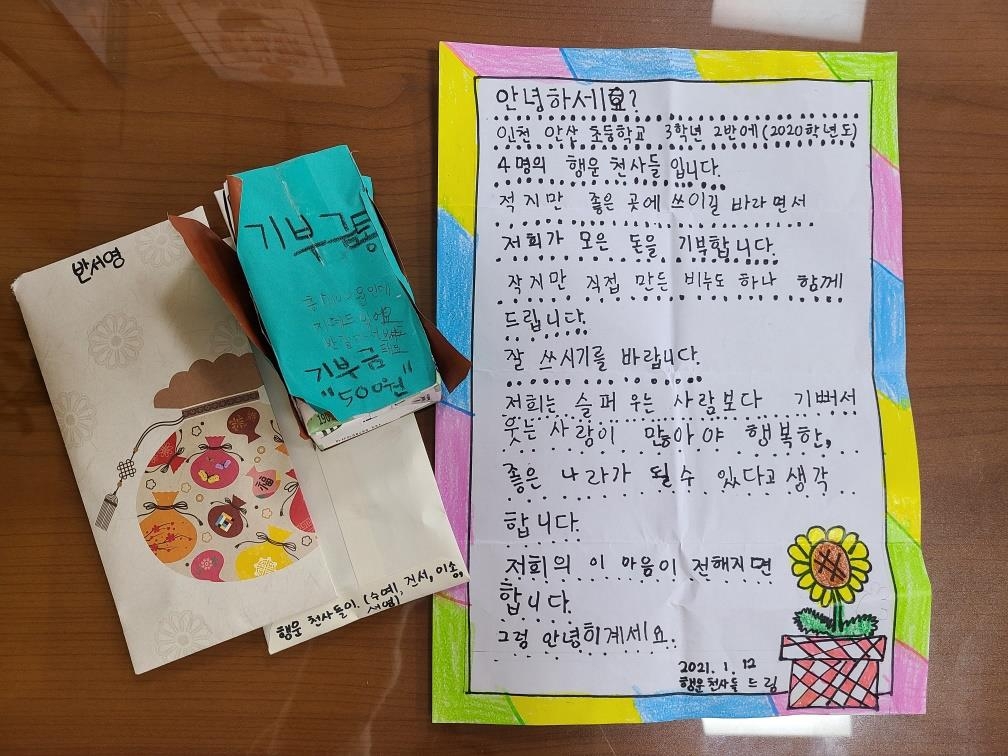 반서영
기부금통
기부금
"500원"
행운 천사들이. (수예, 건서, 이송,
서영)
안녕하세요?
인천 안산 초등학교 3학년 2반에(2020학년도)
4명의 행운 천사들 입니다.
적지만 좋은 곳에 쓰이길 바라면서
저희가 모은 돈을 기부합니다.
작지만 직접 만든 비누도 하나 함께
드립니다.
잘 쓰시기를 바랍니다.
저희는 슬퍼 우는 사람보다 기뻐서
웃는 사람이 많아야 행복한,
좋은 나라가 될수 있다고 생각
합니다.
저희의 이 마음이 전해지면
합니다.
그럼 안녕히계세요.
2021. 1. 12
행운천사들 드림